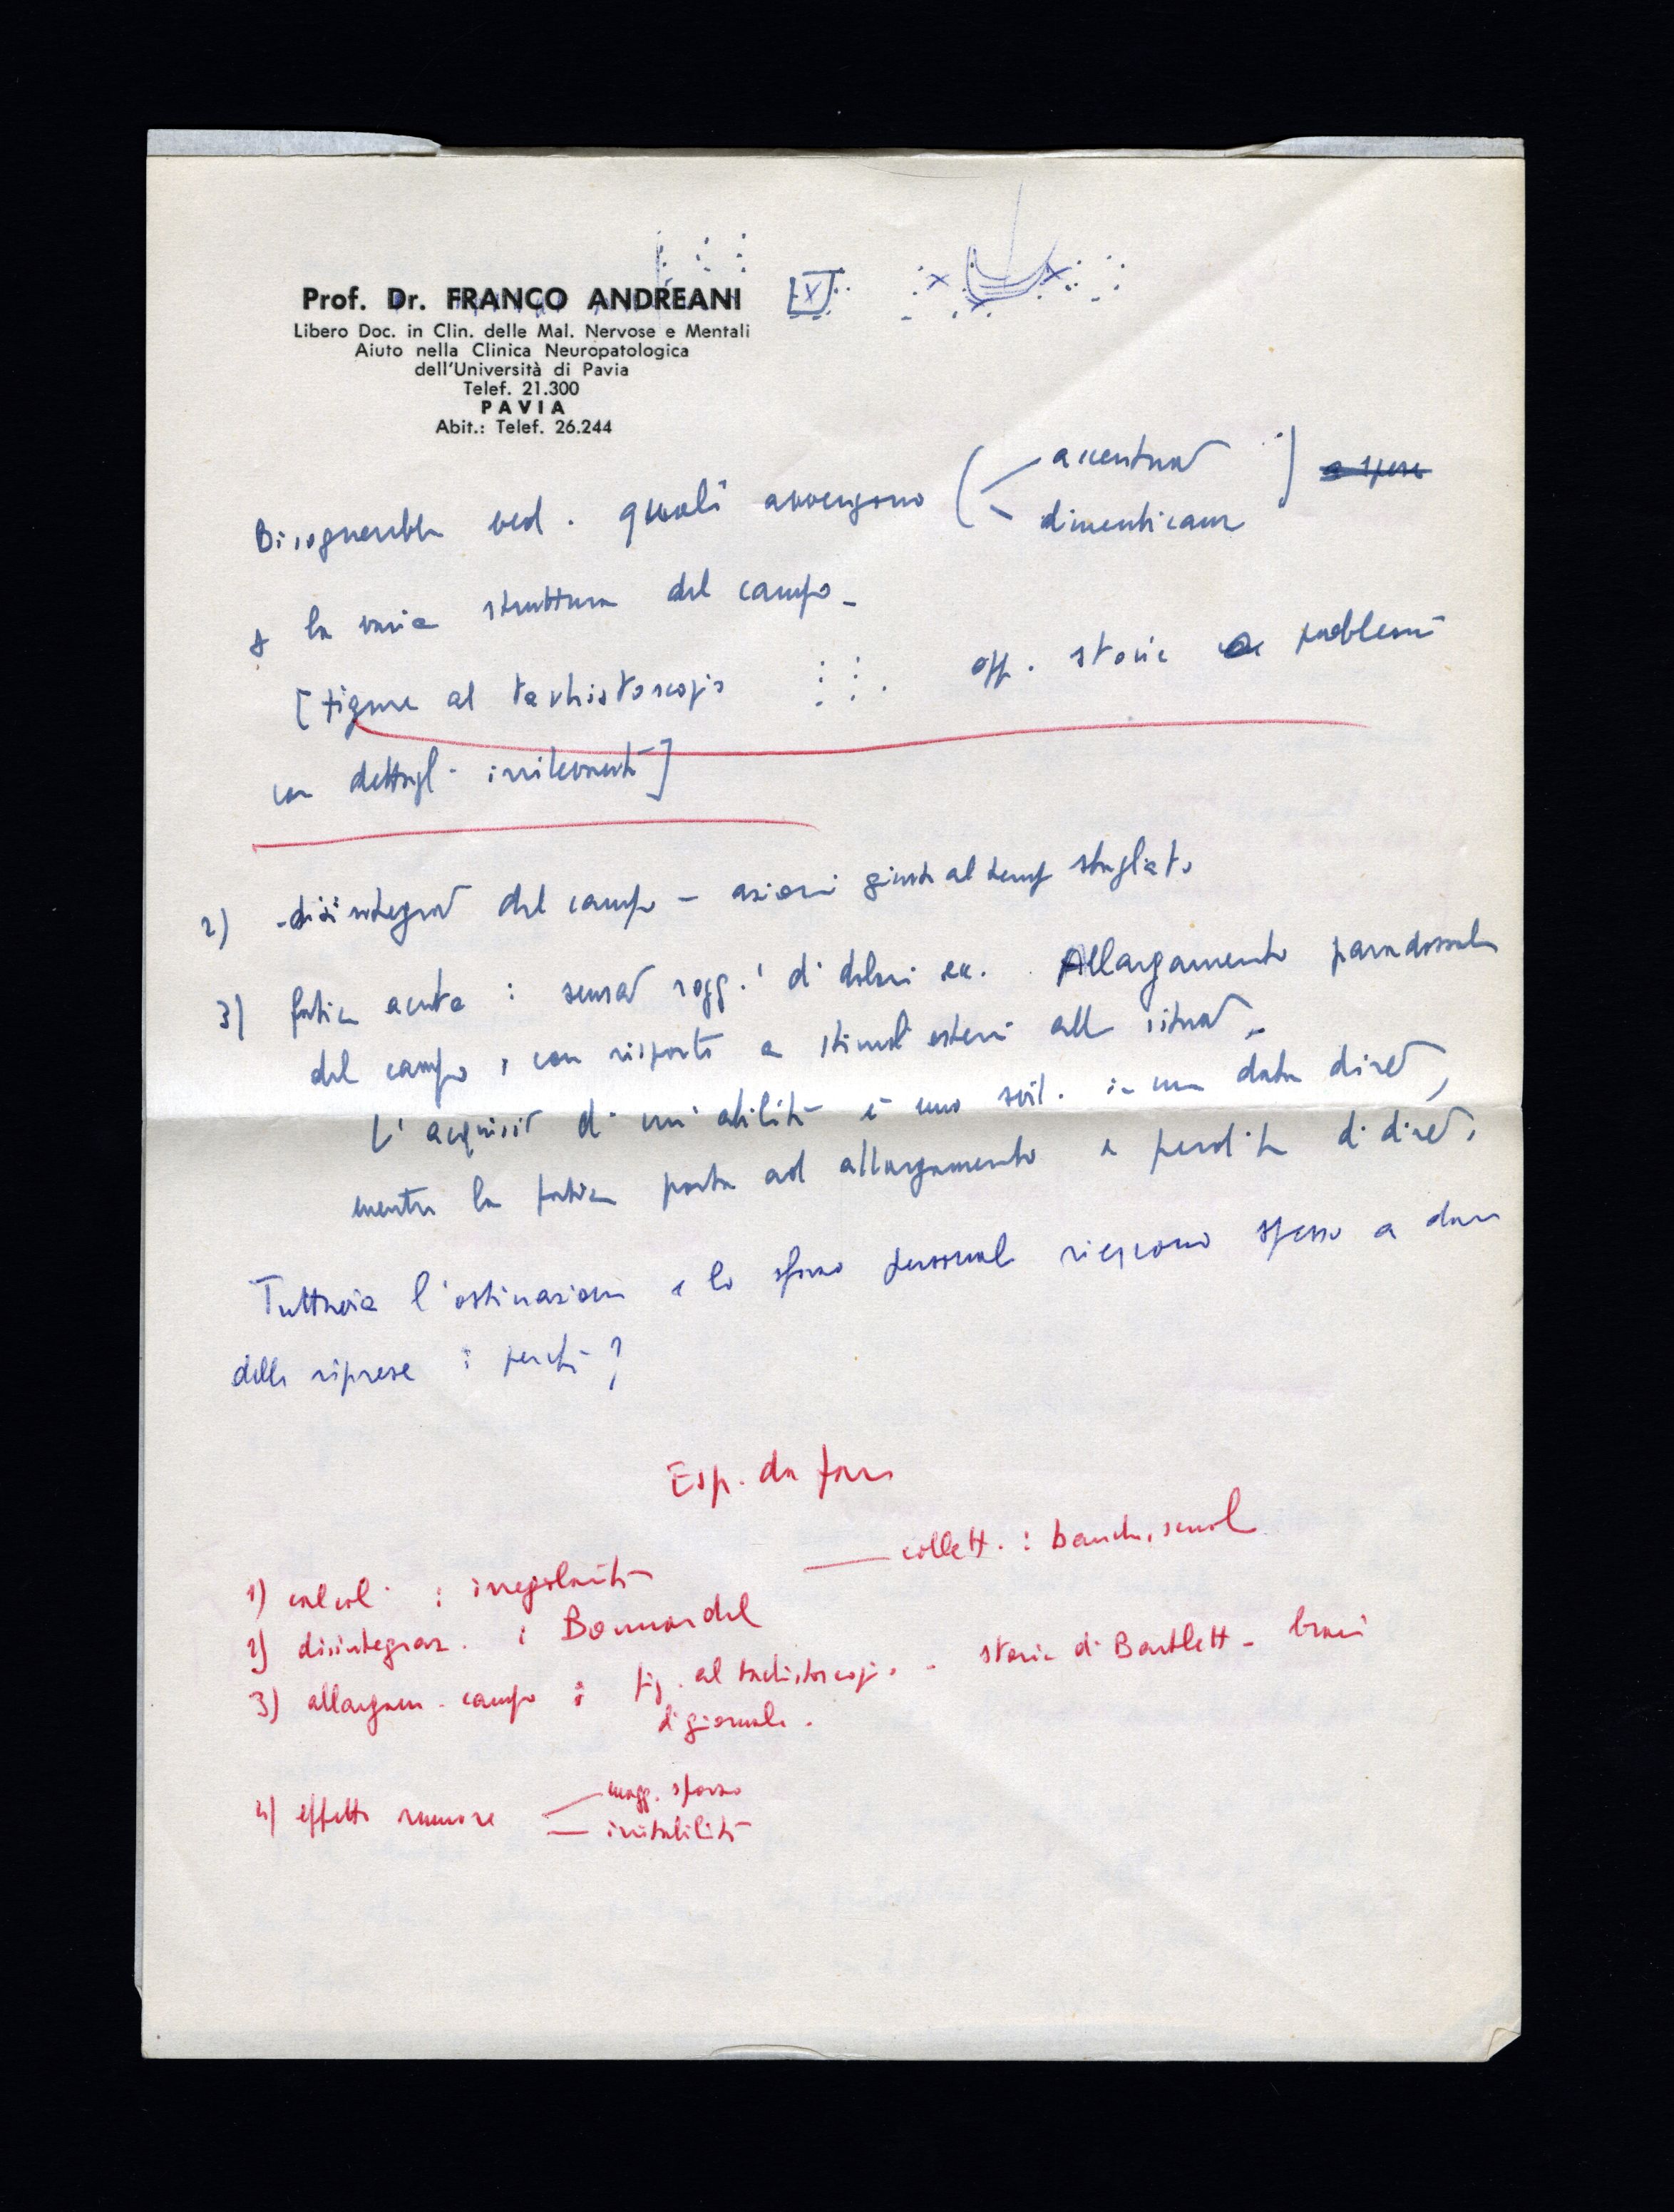 Prof. Dr. FRANCO ANDREANI
Libero Doc. in Clin. delle Mal. Nervose e Mentali
Aiuto nella Clinica Neuropatologica
dell'Università di Pavia
Telef. 21.300
PAVIA
Abit.: Telef. 26.244
accentuaz
Bisognerebbe ved. quali avvengono (
dimenticanze )
la varia struttura del campo -
[figure al tachistoscopio opp. storie problemi
con dettagl. irrilevanti]
2) -disintegraz del campo - azioni giuste al temp sbagliato
3) fatica acuta : sensaz sogg. di dolori ecc. Allargamento paradossale
del campo, con risposte a stimoli esterni alla situaz.
L'acquisiz di un'abilità è uno svil. in una data direz,
mentre la fatica porta ad allargamento e perdita di direz.
Tuttavia l'ostinazione e lo sforzo personale riescono spesso a dare
delle riprese : perché?
Esp. da fare
collett. : banche, scuole
1) calcoli : irregolarità
2) disintegraz. : Bonnardel
3) allargam. campo : fig. al tachistoscopio - storie di Bartlett - brani
di giornale.
magg. sforzo
4) effetto rumore
irritabilità